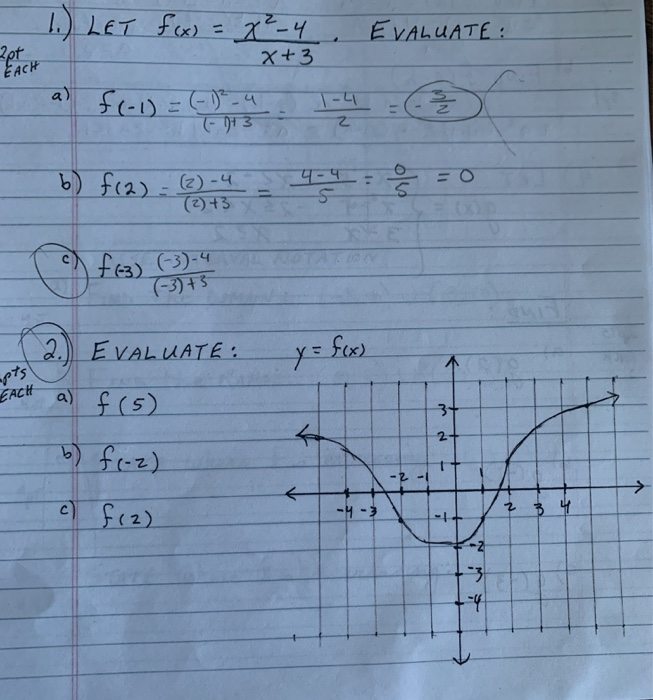 1.) LET f(x) = x² - 4 / x + 3 . EVALUATE:
2pt EACH
a) f(-1) = (-1)² - 4 / (-1) + 3 = 1 - 4 / 2 = - 3 / 2
b) f(2) = (2) - 4 / (2) + 3 = 4 - 4 / 5 = 0 / 5 = 0
c) f(-3) (-3) - 4 / (-3) + 3
2.) EVALUATE: y = f(x)
pts EACH
a) f(5)
b) f(-2)
c) f(2)
3
2
1
-4 -3 -2 -1 1 2 3 4
-1
-2
-3
-4